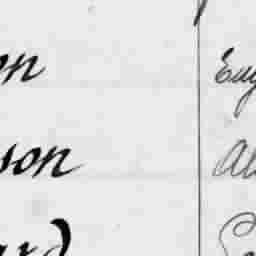 on Eug
son Al
ard